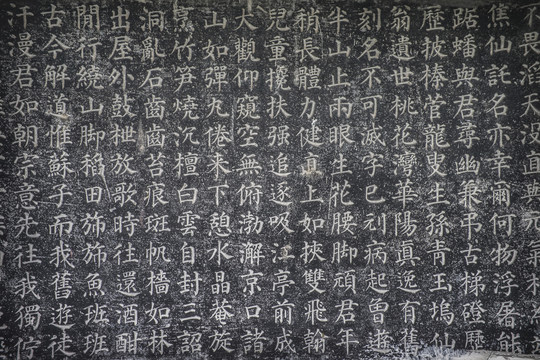 不畏滔天沒直與元氣相
焦仙託名亦幸爾何物浮屠能
踞蟠與君尋幽兼弔古梯磴歷
歷披榛菅龍叟生孫青玉塢仙
翁遺世桃花灣華陽眞逸有舊
刻名不可滅字已刓病起曾遊
半山止兩眼生花腰脚頑君年
稍長體力健直上如挾雙飛翰
兒童攙扶强追逐吸江亭前成
大觀仰窺空無俯渤澥京口諸
山如彈丸倦來下憩水晶菴旋
烹竹笋燒沉檀白雲自封三詔
洞亂石齒齒苔痕斑帆檣如林
出屋外鼓枻放歌時往還酒酣
閒行繞山脚稻田斾斾魚班班
古今解道惟蘇子而我舊遊徒
汗漫君如朝宗意先往我獨佇